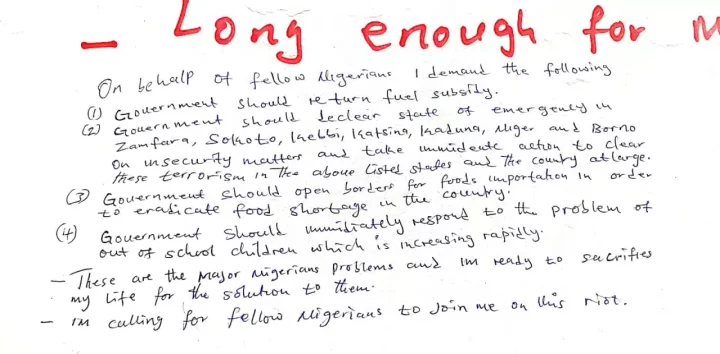 - Long enough for m
On behalf of fellow Nigerians I demand the following
(1) Government should return fuel subsidy.
(2) Government should declear state of emergency in
Zamfara, Sokoto, Kebbi, Katsina, Kaduna, Niger and Borno
on insecurity matters and take immideate action to clear
these terrorism in the above listed states and the country at large.
(3) Government should open borders for foods importation in order
to eradicate food shortage in the country.
(4) Government should immidiately respond to the problem of
out of school children which is increasing rapidly.
- These are the major Nigerians problems and im ready to sacrifies
my life for the solution to them.
- im calling for fellow Nigerians to join me on this riot.